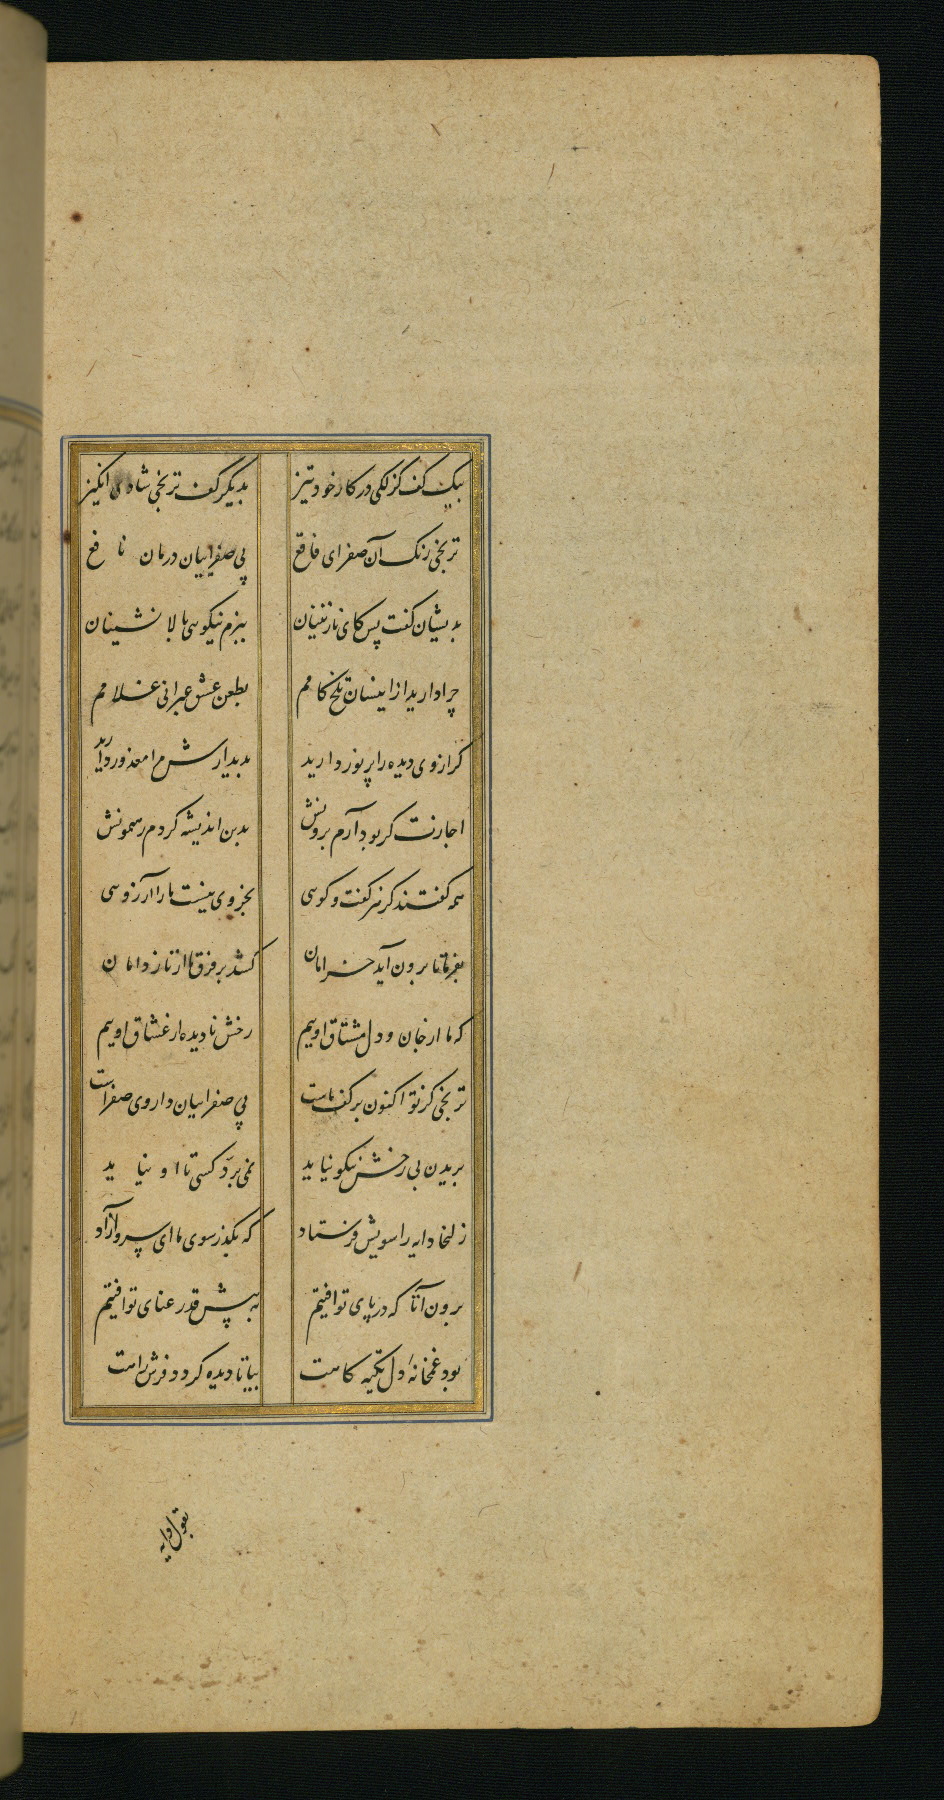 بیک کف کزلکی در کار خود تیز بدیگر کف ترنجی شادی انگیز
ترنجی رنک آن صفرای فاقع پی صفراییان درمان نافع
بدیشان کفت پس کای نازنینان ببزم نیکوی بالا نشینان
چرا دارید ازینسان تلخ کامم بطعن عشق عبرانی غلامم
کر از وی دیده را پر نور دارید بدیدارش مرا معذور دارید
اجازت کر بود آرم برونش بدین اندیشه کردم رهمونش
همه کفتند کز هر کفت و کوی بجز وی نیست ما را آرزوی
بفرما تا برون آید خرامان کشد بر فرق ما از ناز دامان
که ما از جان و دل مشتاق اوییم رخش نادیده از عشاق اوییم
ترنجی کز تو اکنون بر کف ماست پی صفراییان داروی صفراست
بریدن بی رخش نیکو نیاید نمی برّد کسی تا او نیاید
زلیخا دایه را سویش فرستاد که بکذر سوی ما ای سرو آزاد
برون آ تا که در پای تو افتیم به پیش قد رعنای تو افتیم
بود غمخانهٔ دل تکیه کاهت بیا تا دیده کردد فرش راهت
بقول دایه